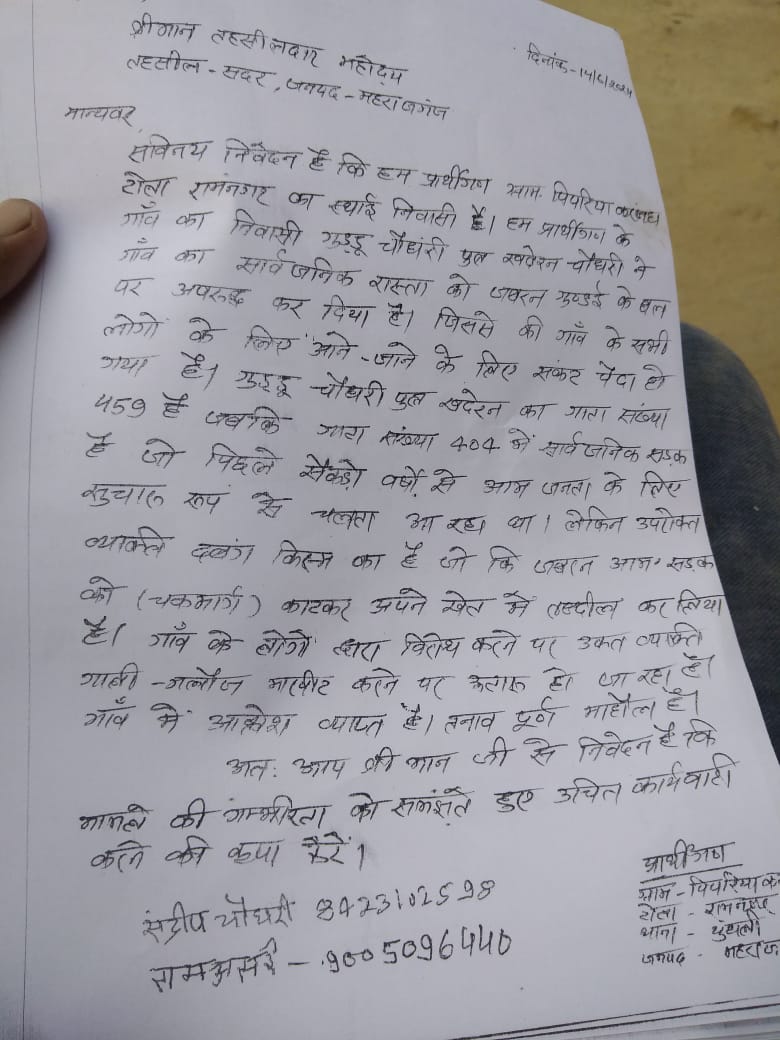 श्रीमान तहसीलदार महोदय
दिनांक-14/6/2024
तहसील-सदर, जनपद-महराजगंज
मान्यवर,
सविनय निवेदन है कि हम प्रार्थीगण ग्राम पिपरिया
टोला रामनगर का स्थाई निवासी है। हम प्रार्थीगण के
गाँव का निवासी गुड्डू चौधरी पुत्र खदेरन चौधरी ने
गाँव का सार्वजनिक रास्ता को जबरन गुण्डई के बल
पर अवरुद्ध कर दिया है। जिससे की गाँव के सभी
लोगों के लिए आने-जाने के लिए संकट पैदा हो
गया है। गुड्डू चौधरी पुत्र खदेरन का गाटा संख्या
459 है जबकि गाटा संख्या 404 में सार्वजनिक सड़क
है जो पिछले सैकड़ो वर्षो से आम जनता के लिए
सुचारू रूप से चलता आ रहा था। लेकिन उपरोक्त
व्यक्ति दबंग किस्म का है जो कि जबरन आम सड़क
को (चकमार्ग) काटकर अपने खेत में तब्दील कर लिया
है। गाँव के लोगों द्वारा विरोध करने पर उक्त व्यक्ति
गाली-गलौज मारपीट करने पर उतारू हो जा रहा है।
गाँव में आक्रोश व्याप्त है। तनाव पूर्ण माहौल है।
अत: आप श्री मान जी से निवेदन है कि
मामले की गम्भीरता को समझते हुए उचित कार्यवाही
करने की कृपा करें।
प्रार्थीगण
ग्राम-पिपरिया
टोला-रामनगर
थाना-
जनपद-
संदीप चौधरी 8423102598
रामअसरे-9005096440